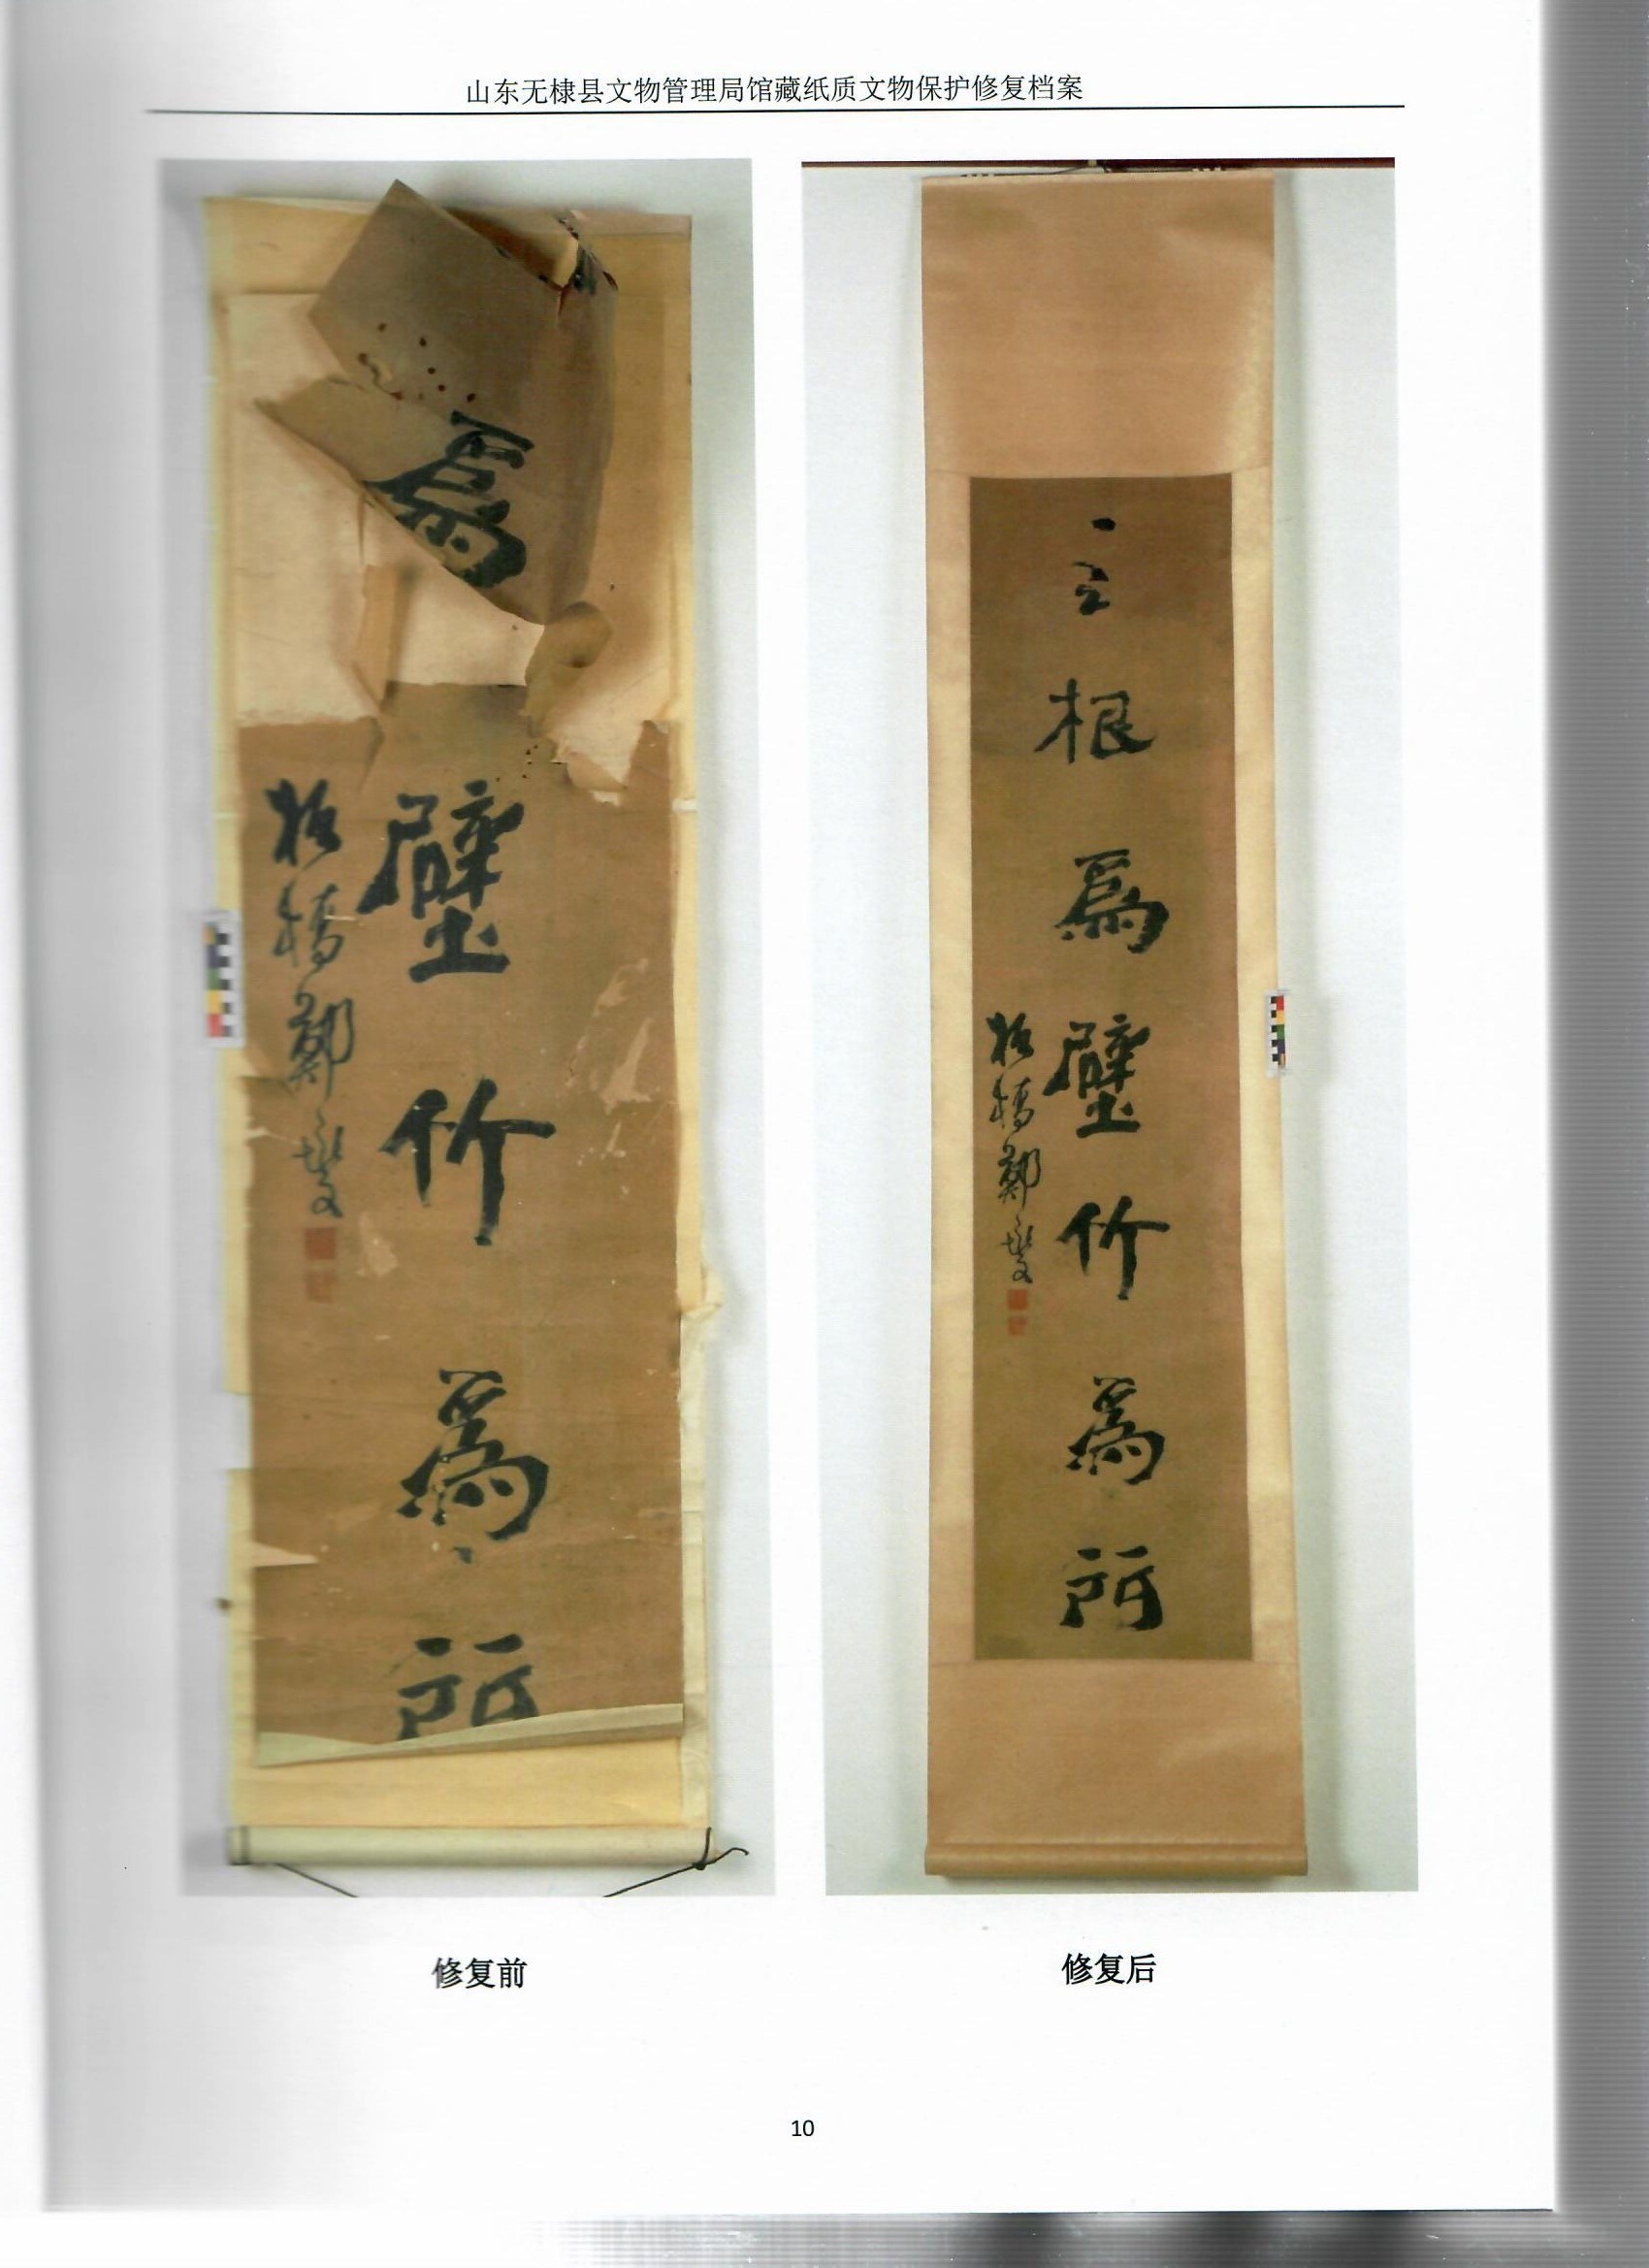 山东无棣县文物管理局馆藏纸质文物保护修复档案
爲
壁竹爲所
板橋鄭燮
根爲壁竹爲所
板橋鄭燮
修复前
修复后
10